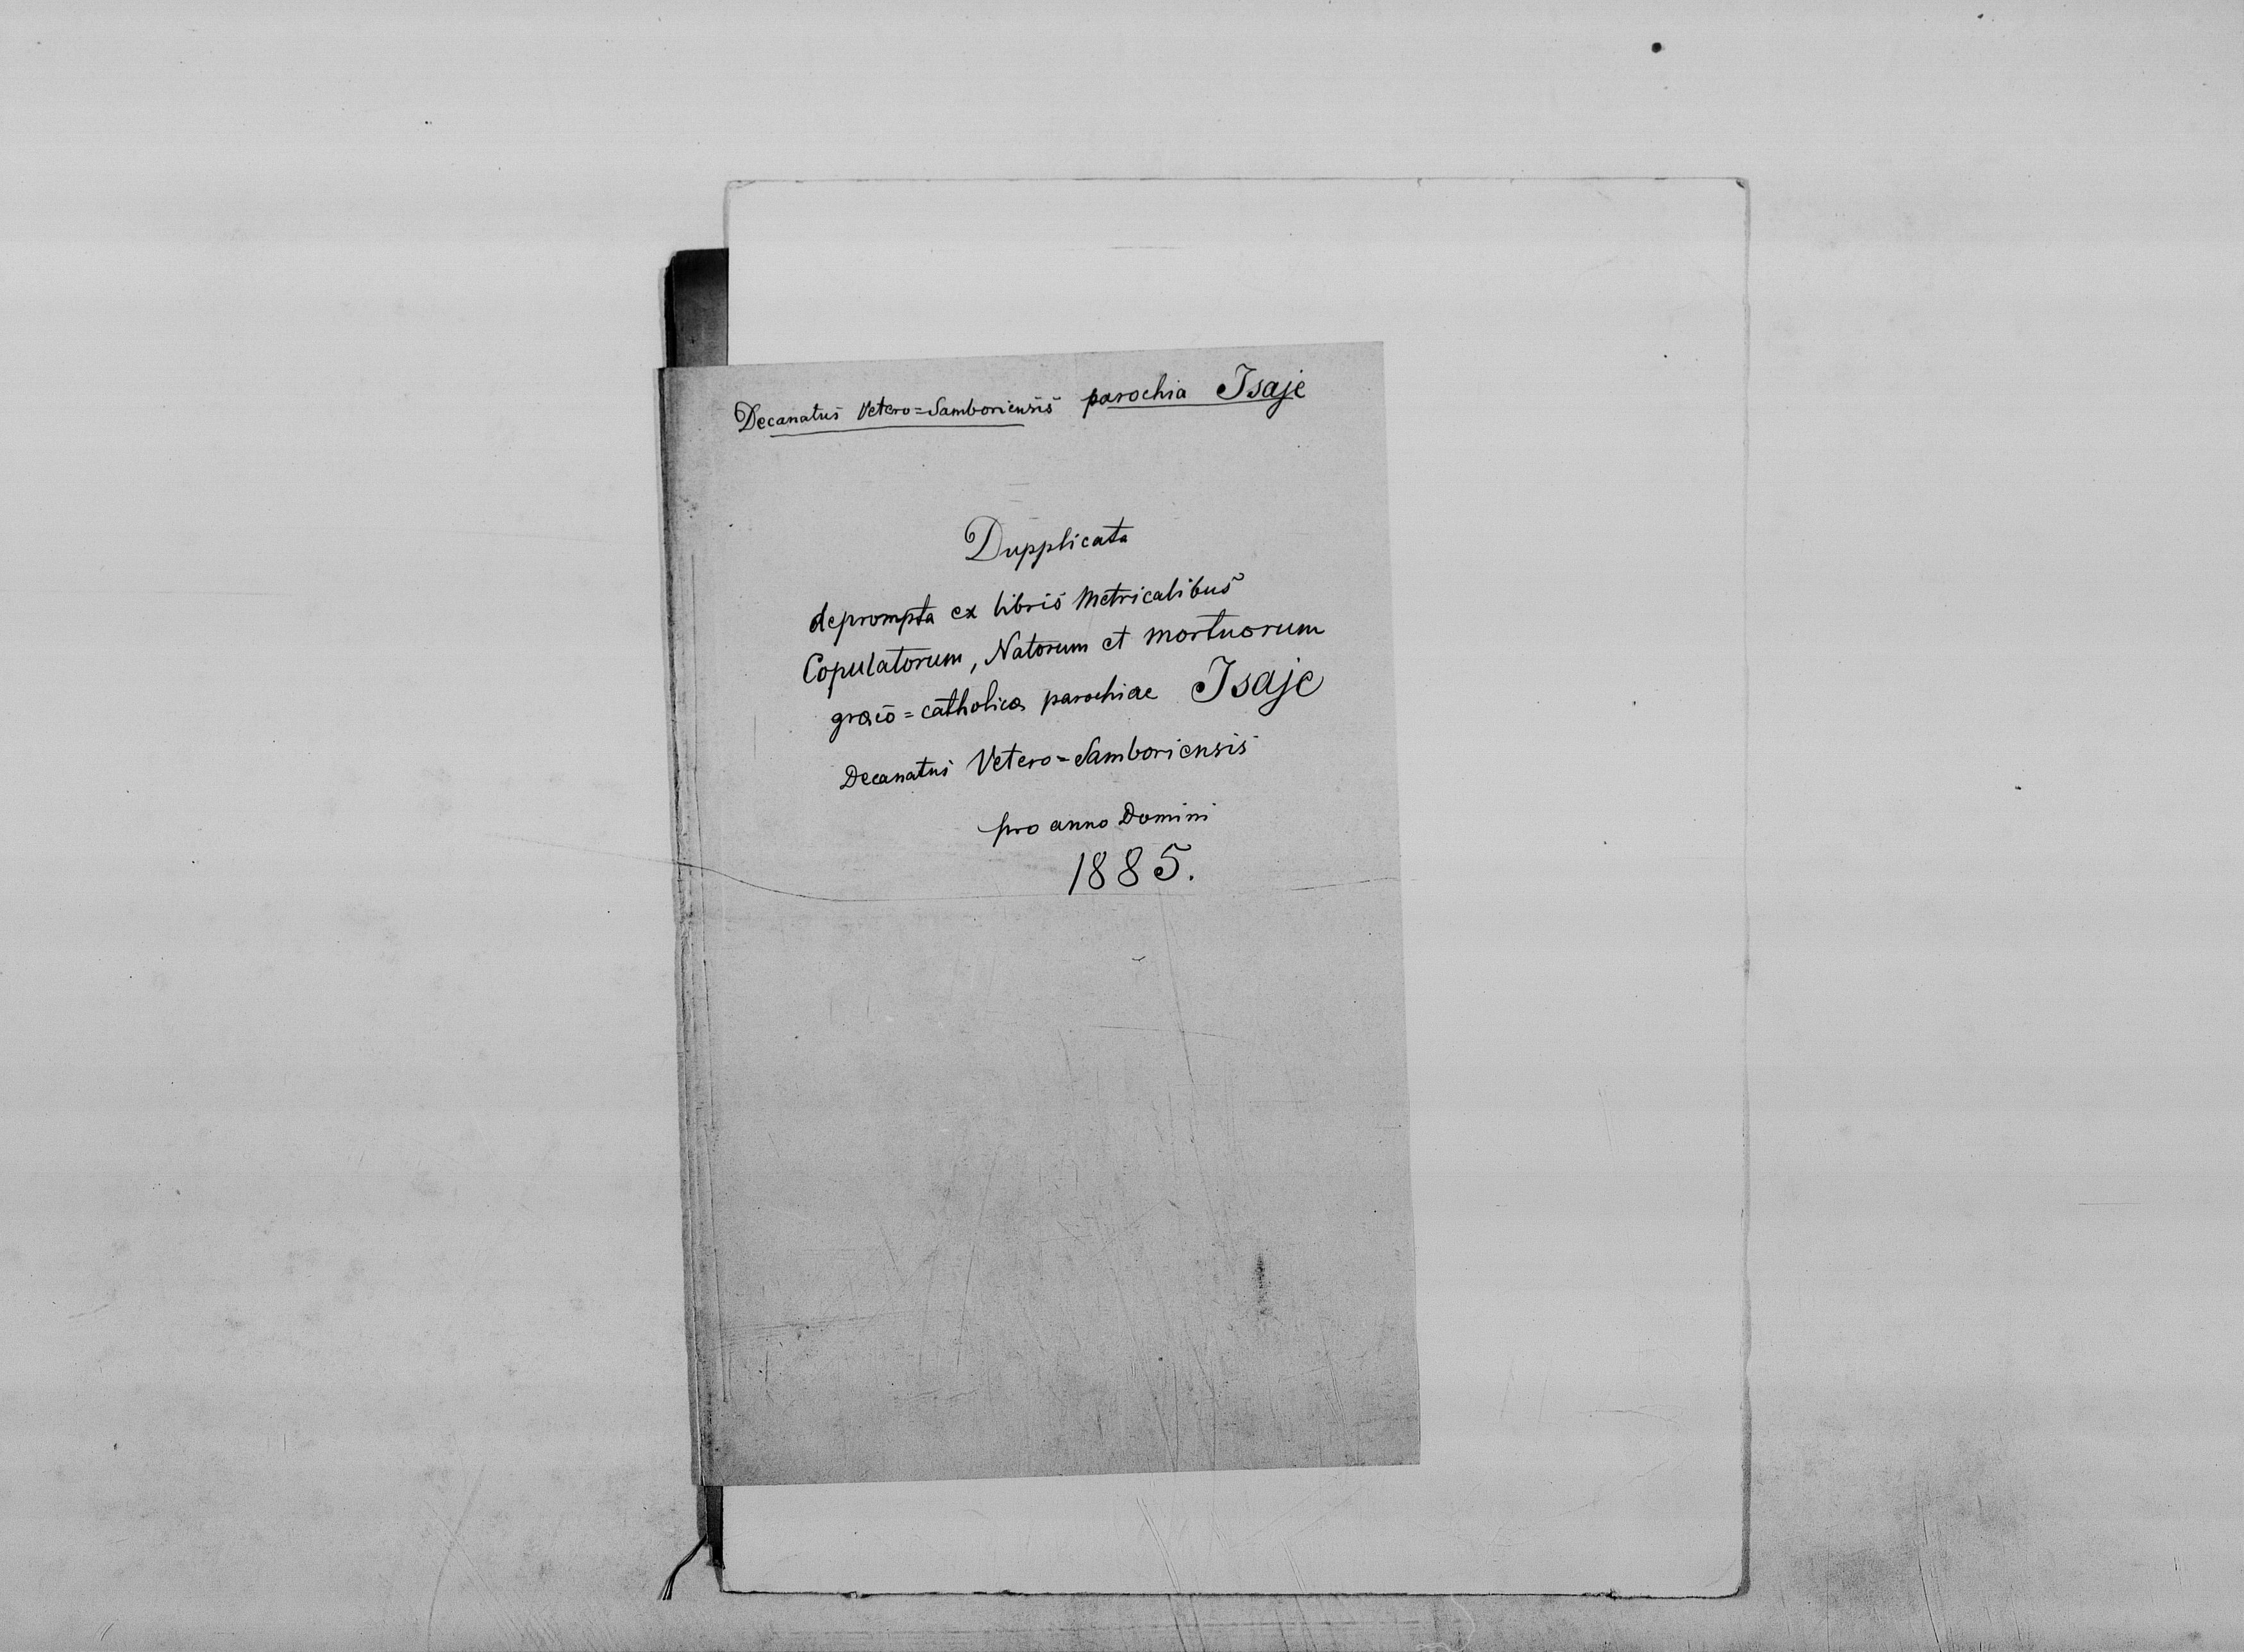 Decanatus Vetero=Samboriensis parochia Isaje
Dupplicata
deprompta ex libris Metricalibus
Copulatorum, Natorum et mortuorum
graeco=catholica parochiae Isaje
Decanatus Vetero=Samboriensis
pro anno Domini
1885.